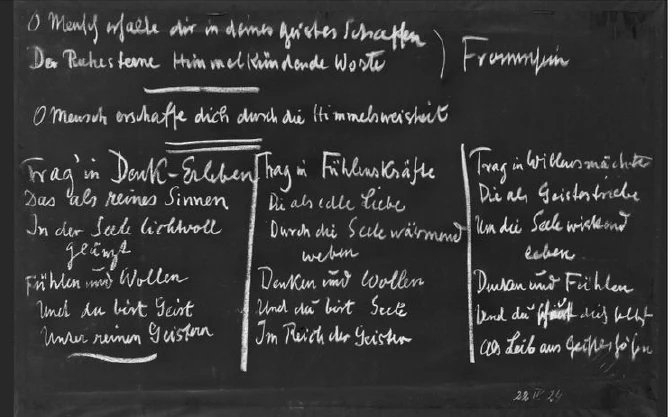 O Mensch erfasse dir in deines Geistes Schaffen
Der Ruhesterne Himmelkündende Worte
Frommsein
O Mensch erschaffe dich durch die Himmelsweisheit
Trag' in Denk-Erleben
Das als reines Sinnen
In der Seele lichtvoll
glänzt
Fühlen und Wollen
Und du bist Geist
Unter reinen Geistern
Trag in Fühlenskräfte
Die als edle Liebe
Durch die Seele wärmend
weben
Denken und Wollen
Und du bist Seele
Im Reich der Geister
Trag in Willensmächte
Die als Geistestriebe
Um die Seele wirkend
leben
Denken und Fühlen
Und du dich selbst
Als Leib aus Geisteshöhen
22 IV 24